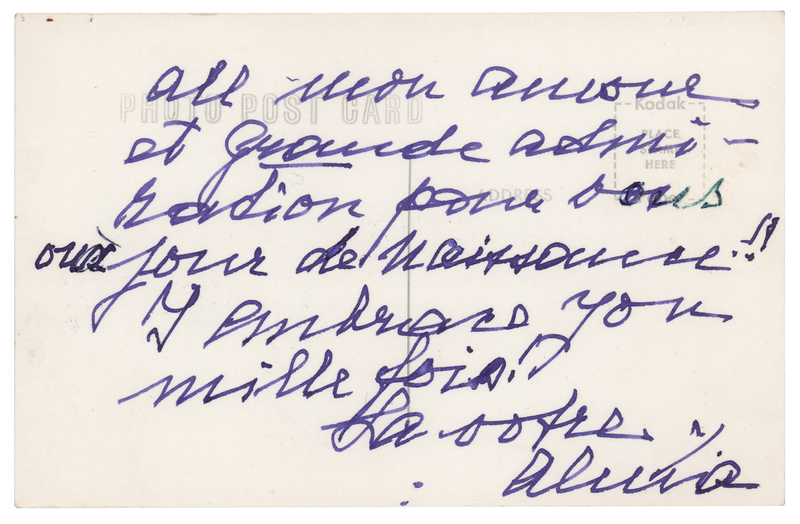 all mon amour
PHOTO POST CARD
Kodak
PLACE
HERE
et grande admi-
ADDRESS
ration pour vous
jour de naissance!!
I embrace you
mille fois!
La votre.